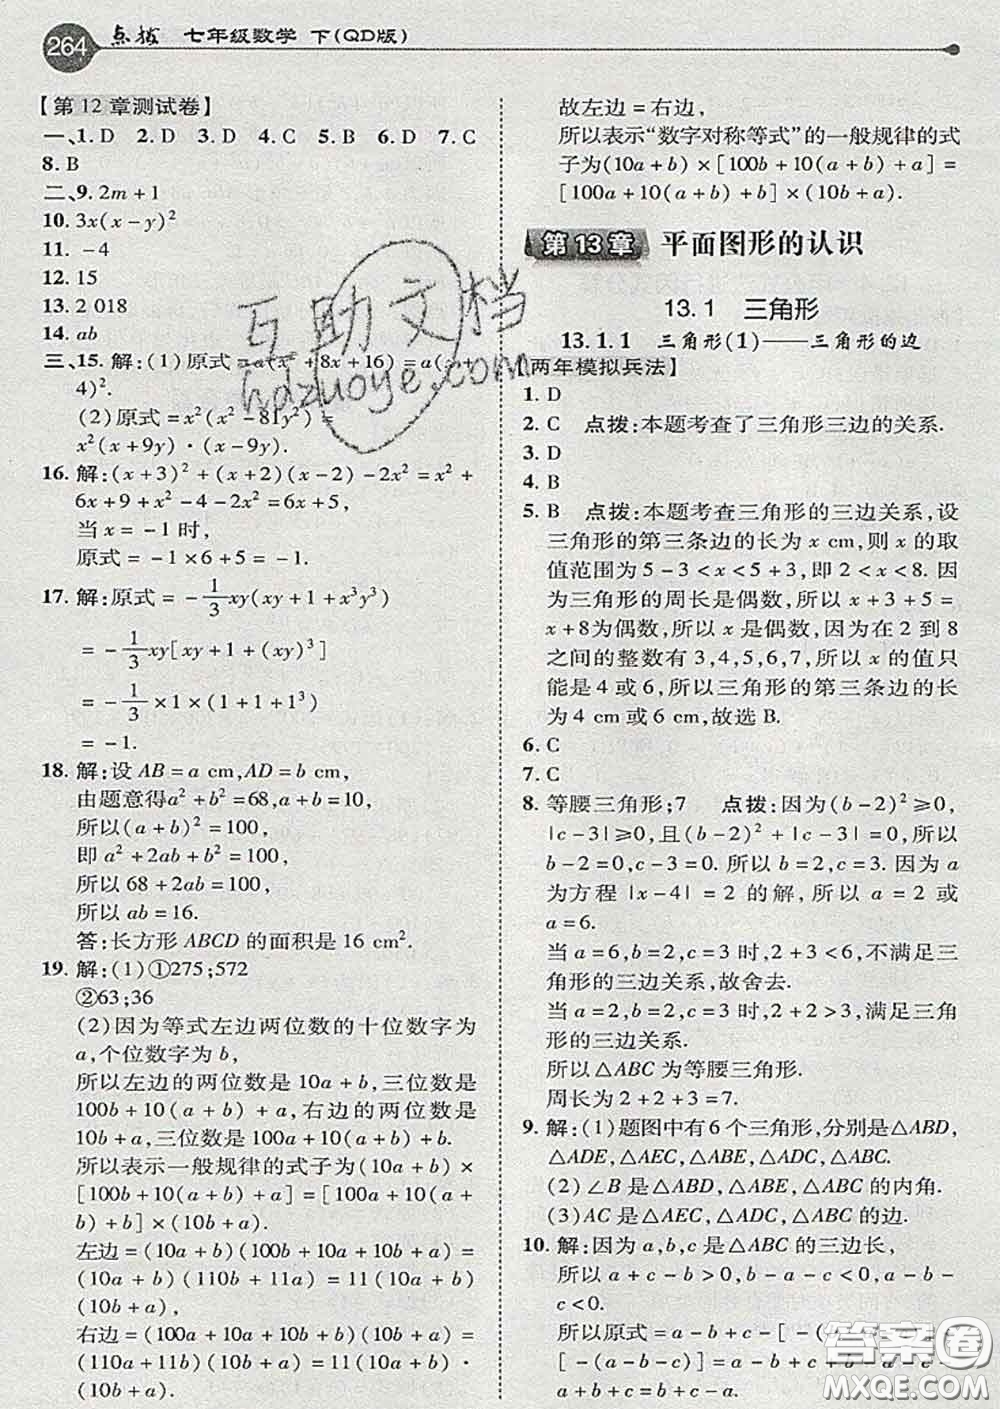 264 点拨 七年级数学 下(QD版)
【第12章测试卷】
一、1. D 2. D 3. D 4. C 5. D 6. D 7. C
8. B
二、9. 2m+1
10. 3x(x-y)²
11. -4
12. 15
13. 2 018
14. ab
三、15. 解:(1)原式=a(x²+8x+16)=a(x+
4)².
(2)原式=x²(x²-81y²)=
x²(x+9y)·(x-9y).
16. 解:(x+3)²+(x+2)(x-2)-2x²=x²+
6x+9+x²-4-2x²=6x+5,
当x=-1时,
原式=-1×6+5=-1.
17. 解:原式=-1/3xy(xy+1+x³y³)
=-1/3xy[xy+1+(xy)³]
=-1/3×1×(1+1+1³)
=-1.
18. 解:设AB=a cm,AD=b cm,
由题意得a²+b²=68,a+b=10,
所以(a+b)²=100,
即a²+2ab+b²=100,
所以68+2ab=100,
所以ab=16.
答:长方形ABCD的面积是16 cm².
19. 解:(1)①275;572
②63;36
(2)因为等式左边两位数的十位数字为
a,个位数字为b,
所以左边的两位数是10a+b,三位数是
100b+10(a+b)+a,右边的两位数是
10b+a,三位数是100a+10(a+b)+b.
所以表示一般规律的式子为(10a+b)×
[100b+10(a+b)+a]=[100a+10(a+
b)+b]×(10b+a).
左边=(10a+b)(100b+10a+10b+a)=
(10a+b)(110b+11a)=11(10a+b)
(10b+a),
右边=(100a+10a+10b+b)(10b+a)=
(110a+11b)(10b+a)=11(10a+b)·
(10b+a),
故左边=右边,
所以表示“数字对称等式”的一般规律的式
子为(10a+b)×[100b+10(a+b)+a]=
[100a+10(a+b)+b]×(10b+a).
第13章 平面图形的认识
13.1 三角形
13.1.1 三角形(1)——三角形的边
【两年模拟兵法】
1. D
2. C 点拨:本题考查了三角形三边的关系.
3. D
4. B
5. B 点拨:本题考查三角形的三边关系,设
三角形的第三条边的长为x cm,则x的取
值范围为5-3<x<5+3,即2<x<8.因
为三角形的周长是偶数,所以x+3+5=
x+8为偶数,所以x是偶数,因为在2到8
之间的整数有3,4,5,6,7,所以x的值只
能是4或6,所以三角形的第三条边的长
为4 cm或6 cm,故选B.
6. C
7. C
8. 等腰三角形;7 点拨:因为(b-2)²≥0,
|c-3|≥0,且(b-2)²+|c-3|=0,所以
b-2=0,c-3=0.所以b=2,c=3.因为a
为方程|x-4|=2的解,所以a=2或
a=6.
当a=6,b=2,c=3时,2+3<6,不满足三
角形的三边关系,故舍去.
当a=2,b=2,c=3时,2+2>3,满足三角
形的三边关系.
所以△ABC为等腰三角形.
周长为2+2+3=7.
9. 解:(1)题图中有6个三角形,分别是△ABD,
△ADE,△AEC,△ABE,△ADC,△ABC.
(2)∠B是△ABD,△ABE,△ABC的内角.
(3)AC是△AEC,△ADC,△ABC的边.
10. 解:因为a,b,c是△ABC的三边长,
所以a+c-b>0,b-a-c<0,a-b-
c<0.
所以原式=a-b+c-[-(b-a-c)]-
[-(a-b-c)]=a-b+c+b-a-c+
a-b-c=a-b-c.
互助文档
hdzuoye.com
答案圈
MXQE.COM